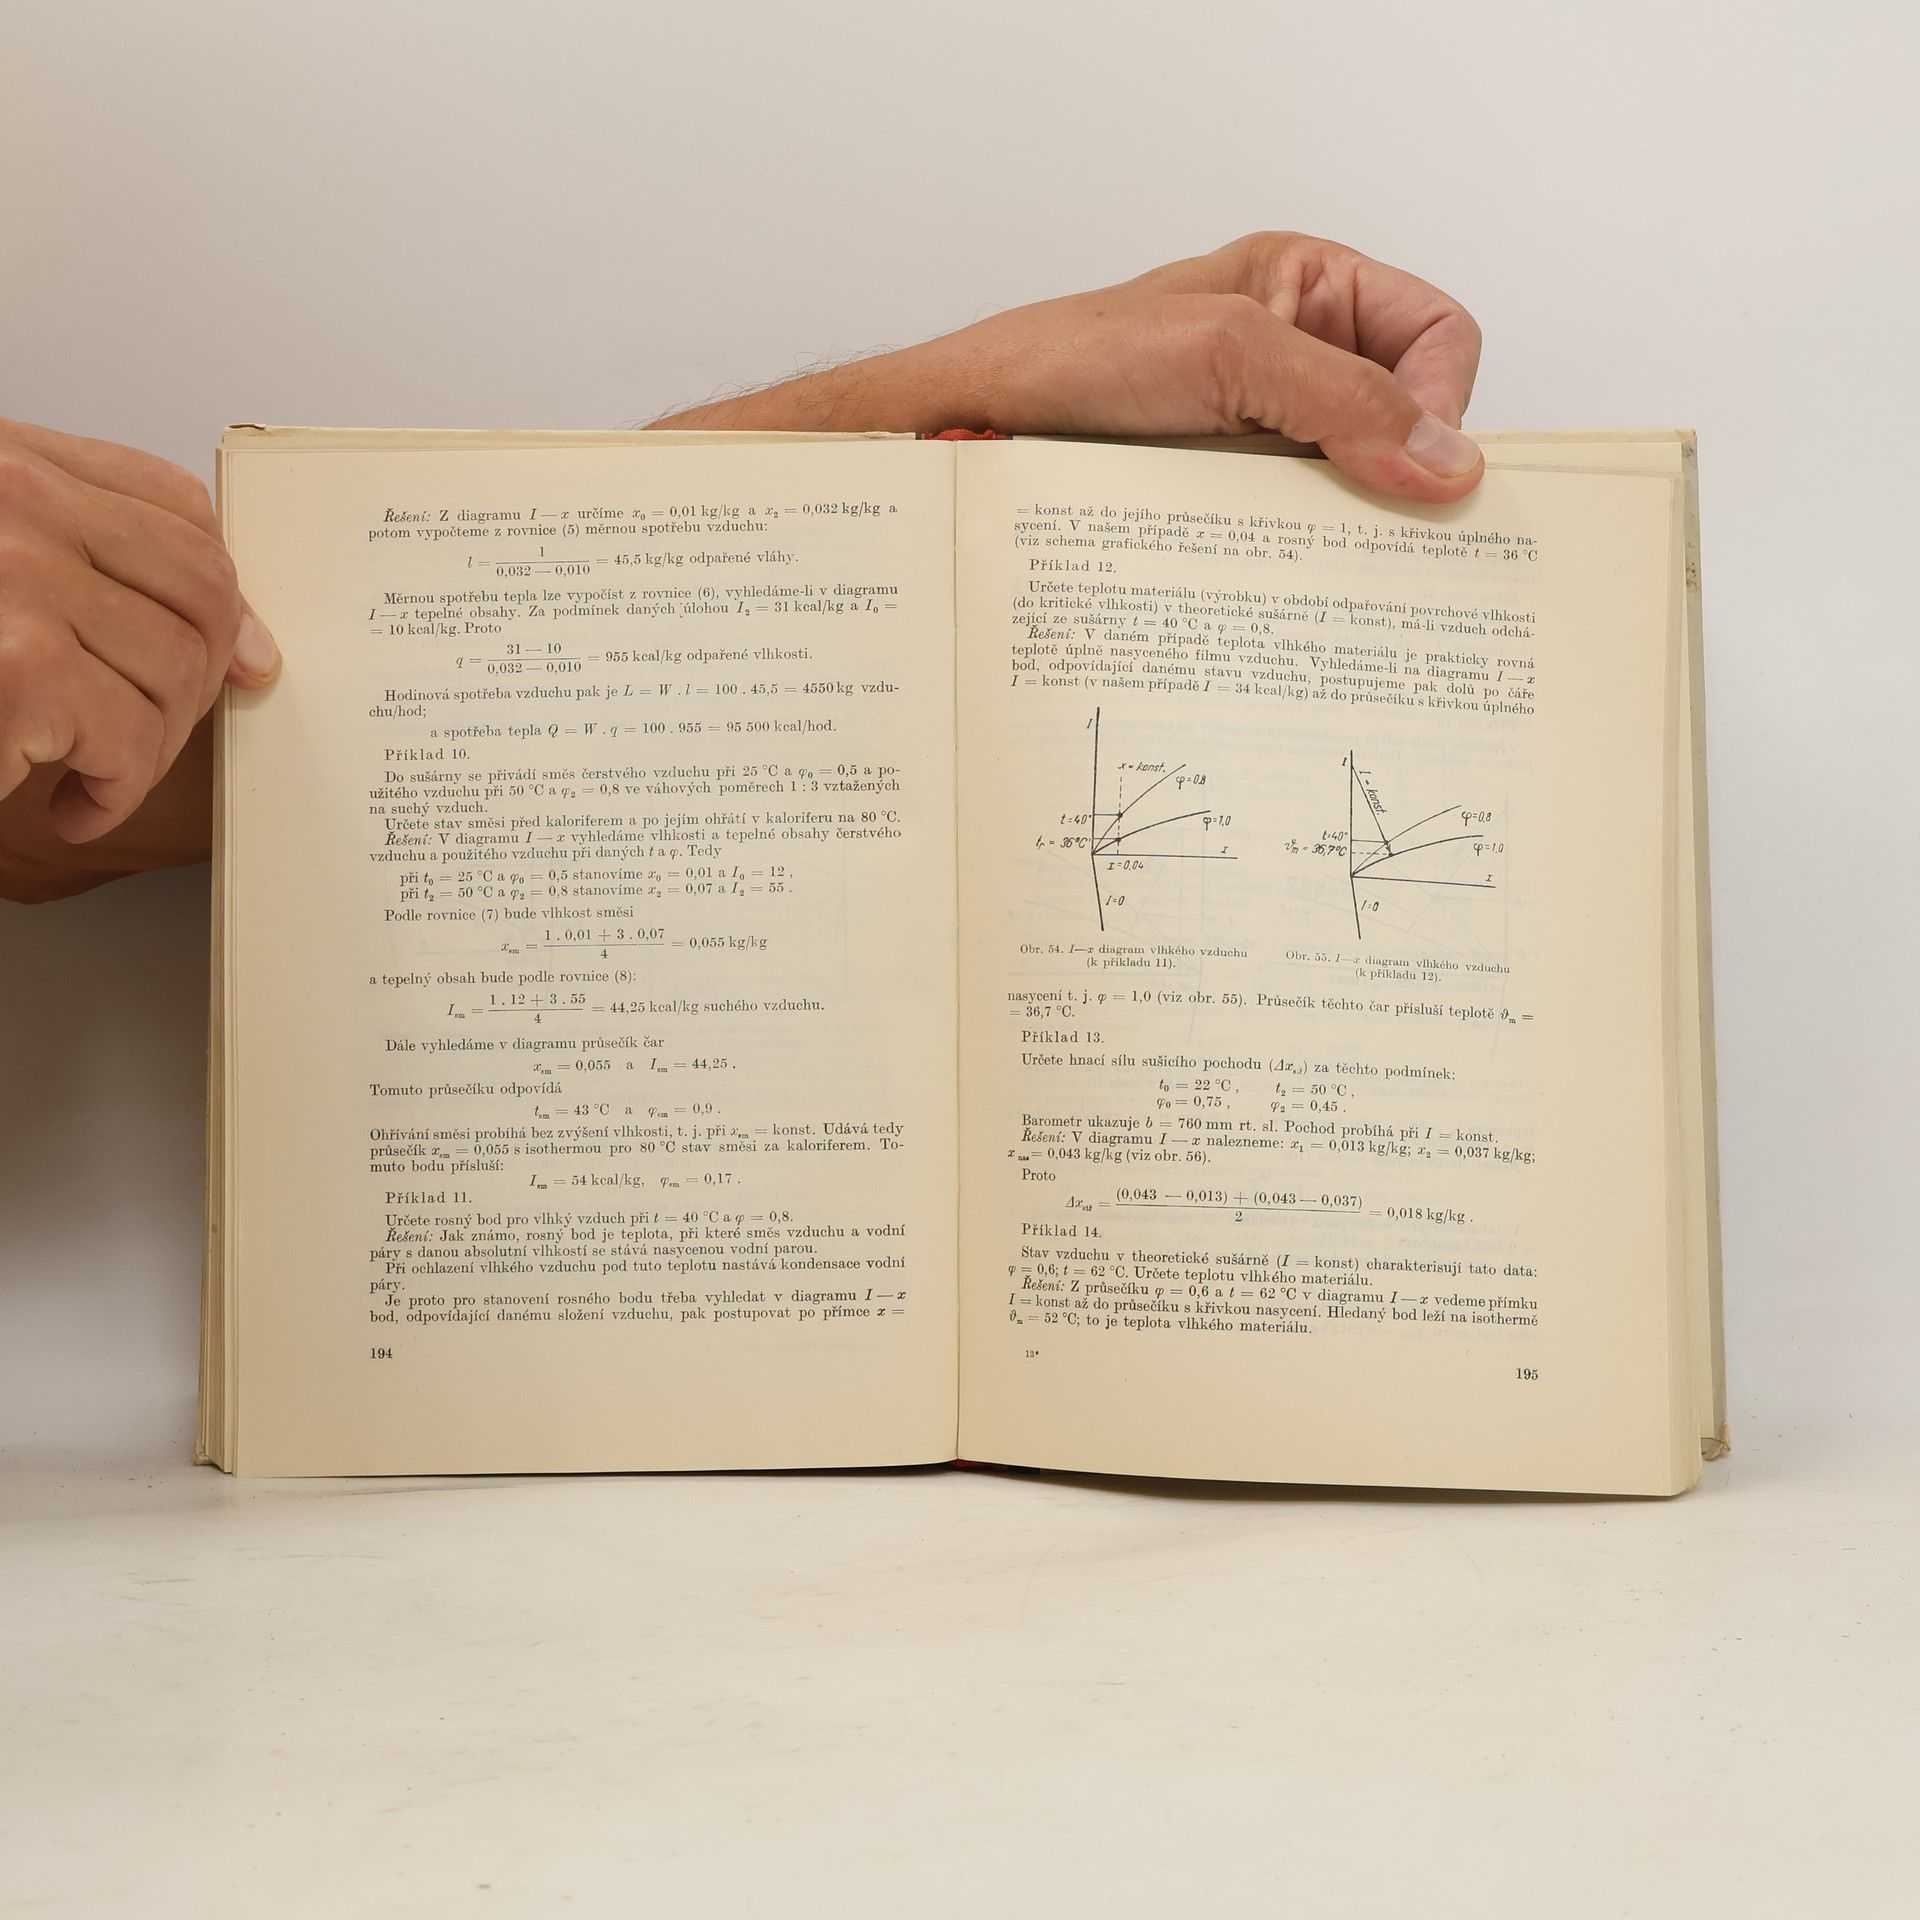 Řešení: Z diagramu I — x určíme x₀ = 0,01 kg/kg a x₂ = 0,032 kg/kg a
potom vypočteme z rovnice (5) měrnou spotřebu vzduchu:
l = 1 / (0,032 — 0,010) = 45,5 kg/kg odpařené vláhy.
Měrnou spotřebu tepla lze vypočíst z rovnice (6), vyhledáme-li v diagramu
I — x tepelné obsahy. Za podmínek daných úlohou I₂ = 31 kcal/kg a I₀ =
= 10 kcal/kg. Proto
q = (31 — 10) / (0,032 — 0,010) = 955 kcal/kg odpařené vlhkosti.
Hodinová spotřeba vzduchu pak je L = W . l = 100 . 45,5 = 4550 kg vzdu-
chu/hod;
a spotřeba tepla Q = W . q = 100 . 955 = 95 500 kcal/hod.
Příklad 10.
Do sušárny se přivádí směs čerstvého vzduchu při 25 °C a φ₀ = 0,5 a po-
užitého vzduchu při 50 °C a φ₂ = 0,8 ve váhových poměrech 1 : 3 vztažených
na suchý vzduch.
Určete stav směsi před kaloriferem a po jejím ohřátí v kaloriferu na 80 °C.
Řešení: V diagramu I — x vyhledáme vlhkosti a tepelné obsahy čerstvého
vzduchu a použitého vzduchu při daných t a φ. Tedy
při t₀ = 25 °C a φ₀ = 0,5 stanovíme x₀ = 0,01 a I₀ = 12 ,
při t₂ = 50 °C a φ₂ = 0,8 stanovíme x₂ = 0,07 a I₂ = 55 .
Podle rovnice (7) bude vlhkost směsi
xsm = (1 . 0,01 + 3 . 0,07) / 4 = 0,055 kg/kg
a tepelný obsah bude podle rovnice (8):
Ism = (1 . 12 + 3 . 55) / 4 = 44,25 kcal/kg suchého vzduchu.
Dále vyhledáme v diagramu průsečík čar
xsm = 0,055 a Ism = 44,25 .
Tomuto průsečíku odpovídá
tsm = 43 °C a φsm = 0,9 .
Ohřívání směsi probíhá bez zvýšení vlhkosti, t. j. při xsm = konst. Udává tedy
průsečík xsm = 0,055 s isothermou pro 80 °C stav směsi za kaloriferem. To-
muto bodu přísluší:
Ism = 54 kcal/kg, φsm = 0,17 .
Příklad 11.
Určete rosný bod pro vlhký vzduch při t = 40 °C a φ = 0,8.
Řešení: Jak známo, rosný bod je teplota, při které směs vzduchu a vodní
páry s danou absolutní vlhkostí se stává nasycenou vodní parou.
Při ochlazení vlhkého vzduchu pod tuto teplotu nastává kondensace vodní
páry.
Je proto pro stanovení rosného bodu třeba vyhledat v diagramu I — x
bod, odpovídající danému složení vzduchu, pak postupovat po přímce x =
194
= konst až do jejího průsečíku s křivkou φ = 1, t. j. s křivkou úplného na-
sycení. V našem případě x = 0,04 a rosný bod odpovídá teplotě t = 36 °C
(viz schema grafického řešení na obr. 54).
Příklad 12.
Určete teplotu materiálu (výrobku) v období odpařování povrchové vlhkosti
(do kritické vlhkosti) v theoretické sušárně (I = konst), má-li vzduch odchá-
zející ze sušárny t = 40 °C a φ = 0,8.
Řešení: V daném případě teplota vlhkého materiálu je prakticky rovná
teplotě úplně nasyceného filmu vzduchu. Vyhledáme-li na diagramu I — x
bod, odpovídající danému stavu vzduchu, postupujeme pak dolů po čáře
I = konst (v našem případě I = 34 kcal/kg) až do průsečíku s křivkou úplného
I
x = konst.
φ=0,8
t=40°
φ=1,0
tr = 36°C
x
x=0,04
I=0
I
I = konst.
φ=0,8
t=40°
φ=1,0
ϑm = 36,7°C
x
I=0
Obr. 54. I—x diagram vlhkého vzduchu
(k příkladu 11).
Obr. 55. I—x diagram vlhkého vzduchu
(k příkladu 12).
nasycení t. j. φ = 1,0 (viz obr. 55). Průsečík těchto čar přísluší teplotě ϑm =
= 36,7 °C.
Příklad 13.
Určete hnací sílu sušicího pochodu (Δxstř) za těchto podmínek:
t₀ = 22 °C , t₂ = 50 °C ,
φ₀ = 0,75 , φ₂ = 0,45 .
Barometr ukazuje b = 760 mm rt. sl. Pochod probíhá při I = konst.
Řešení: V diagramu I — x nalezneme: x₁ = 0,013 kg/kg; x₂ = 0,037 kg/kg;
xnas = 0,043 kg/kg (viz obr. 56).
Proto
Δxstř = ((0,043 — 0,013) + (0,043 — 0,037)) / 2 = 0,018 kg/kg .
Příklad 14.
Stav vzduchu v theoretické sušárně (I = konst) charakterisují tato data:
φ = 0,6; t = 62 °C. Určete teplotu vlhkého materiálu.
Řešení: Z průsečíku φ = 0,6 a t = 62 °C v diagramu I — x vedeme přímku
I = konst až do průsečíku s křivkou nasycení. Hledaný bod leží na isothermě
ϑm = 52 °C; to je teplota vlhkého materiálu.
13*
195